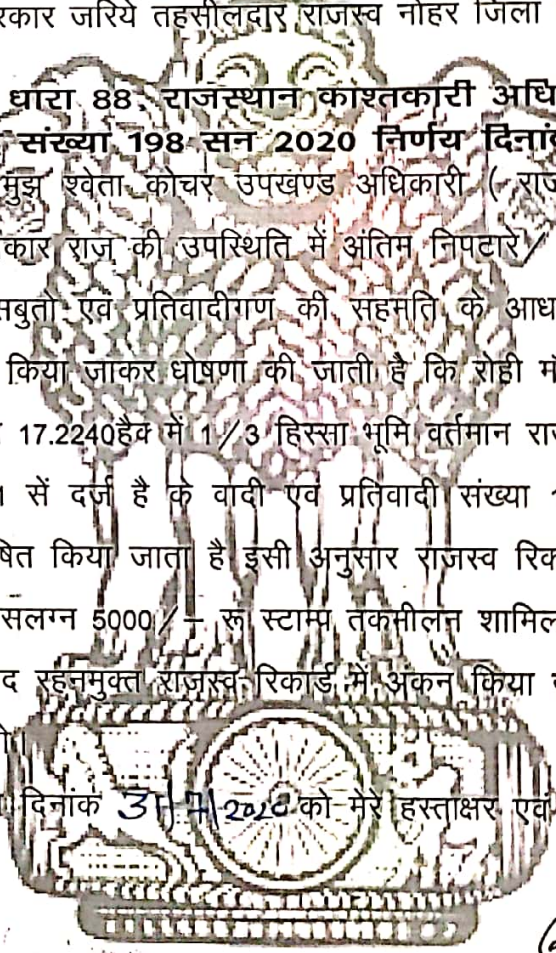 रकार जरिये तहसीलदार राजस्व नोहर जिला
धारा 88, राजस्थान काश्तकारी अधि
संख्या 198 सन 2020 निर्णय दिनां
मुझ श्वेता कोचर उपखण्ड अधिकारी ( राज
कार राज की उपस्थिति में अंतिम निपटारे/
सबुतो एवं प्रतिवादीगण की सहमति के आध
किया जाकर घोषणा की जाती है कि रोही म
17.2240हैक में 1/3 हिस्सा भूमि वर्तमान रा
सें दर्ज है के वादी एवं प्रतिवादी संख्या
षित किया जाता है इसी अनुसार राजस्व रिक
सलग्न 5000/– रू स्टाम्प तकमीलन शामिल
द रहनमुक्त राजस्व रिकार्ड में अंकन किया
दिनांक 31/7/2020 को मेरे हस्ताक्षर एवं